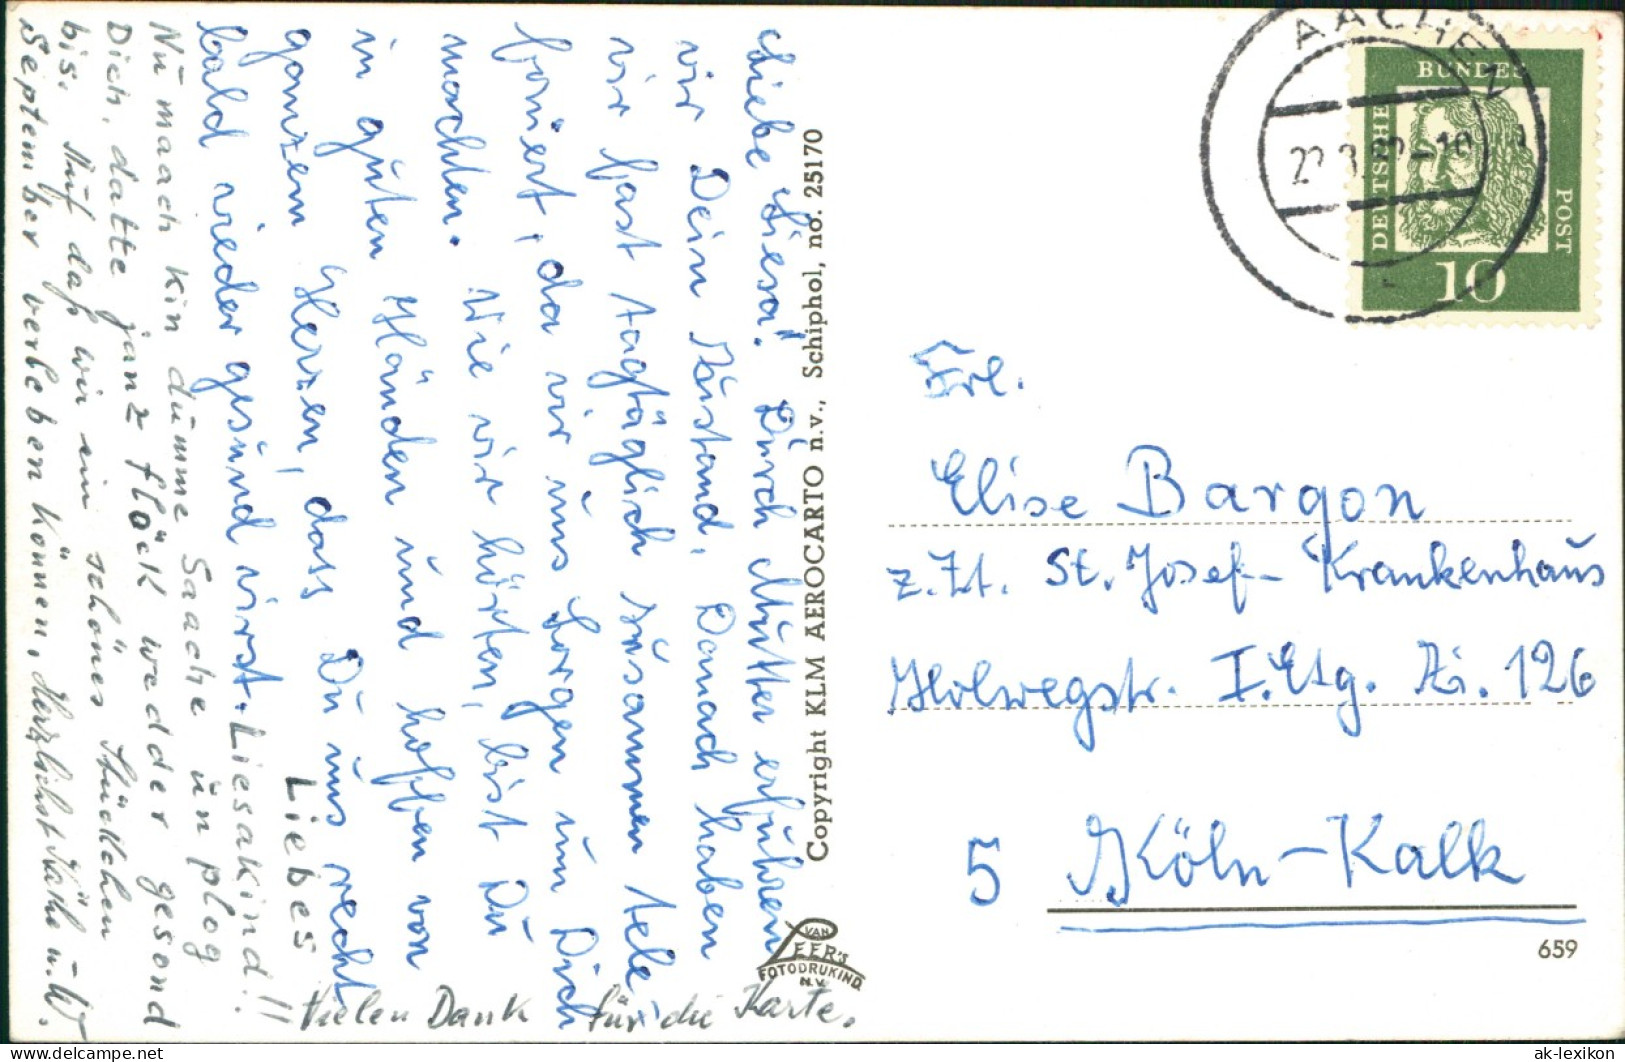 Liebe Liesa! Durch Mutter erfuhren
wir Dein Zustand. Danach haben
wir fast tagtäglich zusammen tele-
foniert, da wir uns Sorgen um Dich
machten. Wie wir hörten, bist Du
in guten Händen und hoffen von
ganzem Herzen, dass Du uns recht
bald wieder gesund wirst.
Liebes
Liesakind!!
Nu maach kin dumme Saache un plog
Dich, datte janz flöck wedder gesond
bis. Auf daß wir ein schönes Stückchen
September verleben können. Herzlichst Käthe u. W.
Vielen Dank für die Karte.
Copyright KLM AEROCARTO n.v., Schiphol, no. 25170
VAN
LEER'S
FOTODRUKIND.
N.V.
AACHEN
DEUTSCHE
BUNDES
POST
10
Frl.
Elise Bargon
z.Zt. St. Josef-Krankenhaus
Holwegstr. I. Etg. Zi. 126
5 Köln-Kalk
659
ak-lexikon